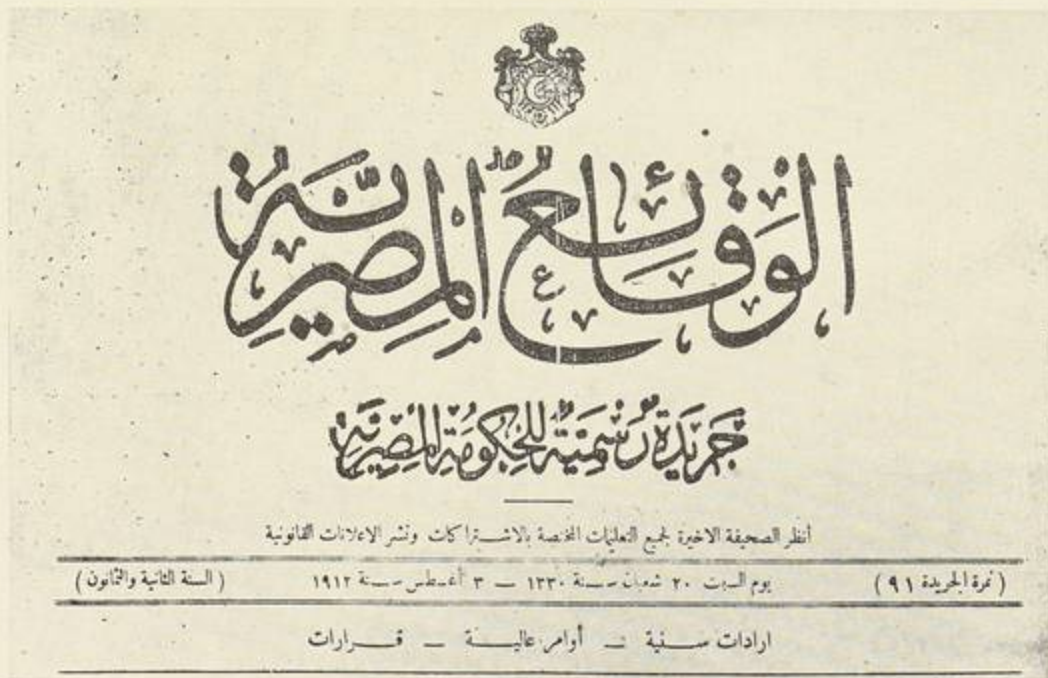 الوَقَائِعُ المِصْرِيَّةُ
جَرِيدَةٌ رَسْمِيَّةٌ لِلْحُكُومَةِ الْمِصْرِيَّةِ
أنظر الصحيفة الاخيرة لجميع التعليمات المختصة بالاشتراكات ونشر الاعلانات القانونية
( نمرة الجريدة ٩١ ) يوم السبت ٢٠ شعبان سنة ١٣٣٠ — ٣ أغسطس سنة ١٩١٢ ( السنة الثانية والثمانون )
ارادات سنية — أوامر عالية — قرارات